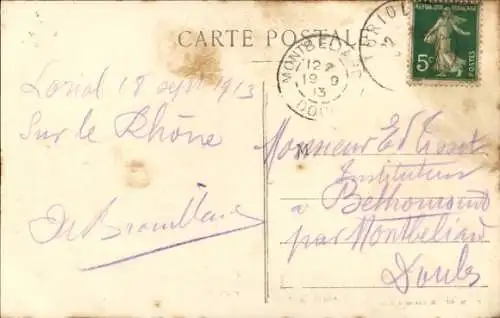 CARTE POSTALE
RÉPUBLIQUE FRANÇAISE
5c
POSTES
LORIOL
MONTBÉLIARD
12
19 9
13
DOUBS
Loriol 18 sept 1913
Sur le Rhône
M
Monsieur Ed
Instituteur
à Bethoncourt
par Montbéliard
Doubs